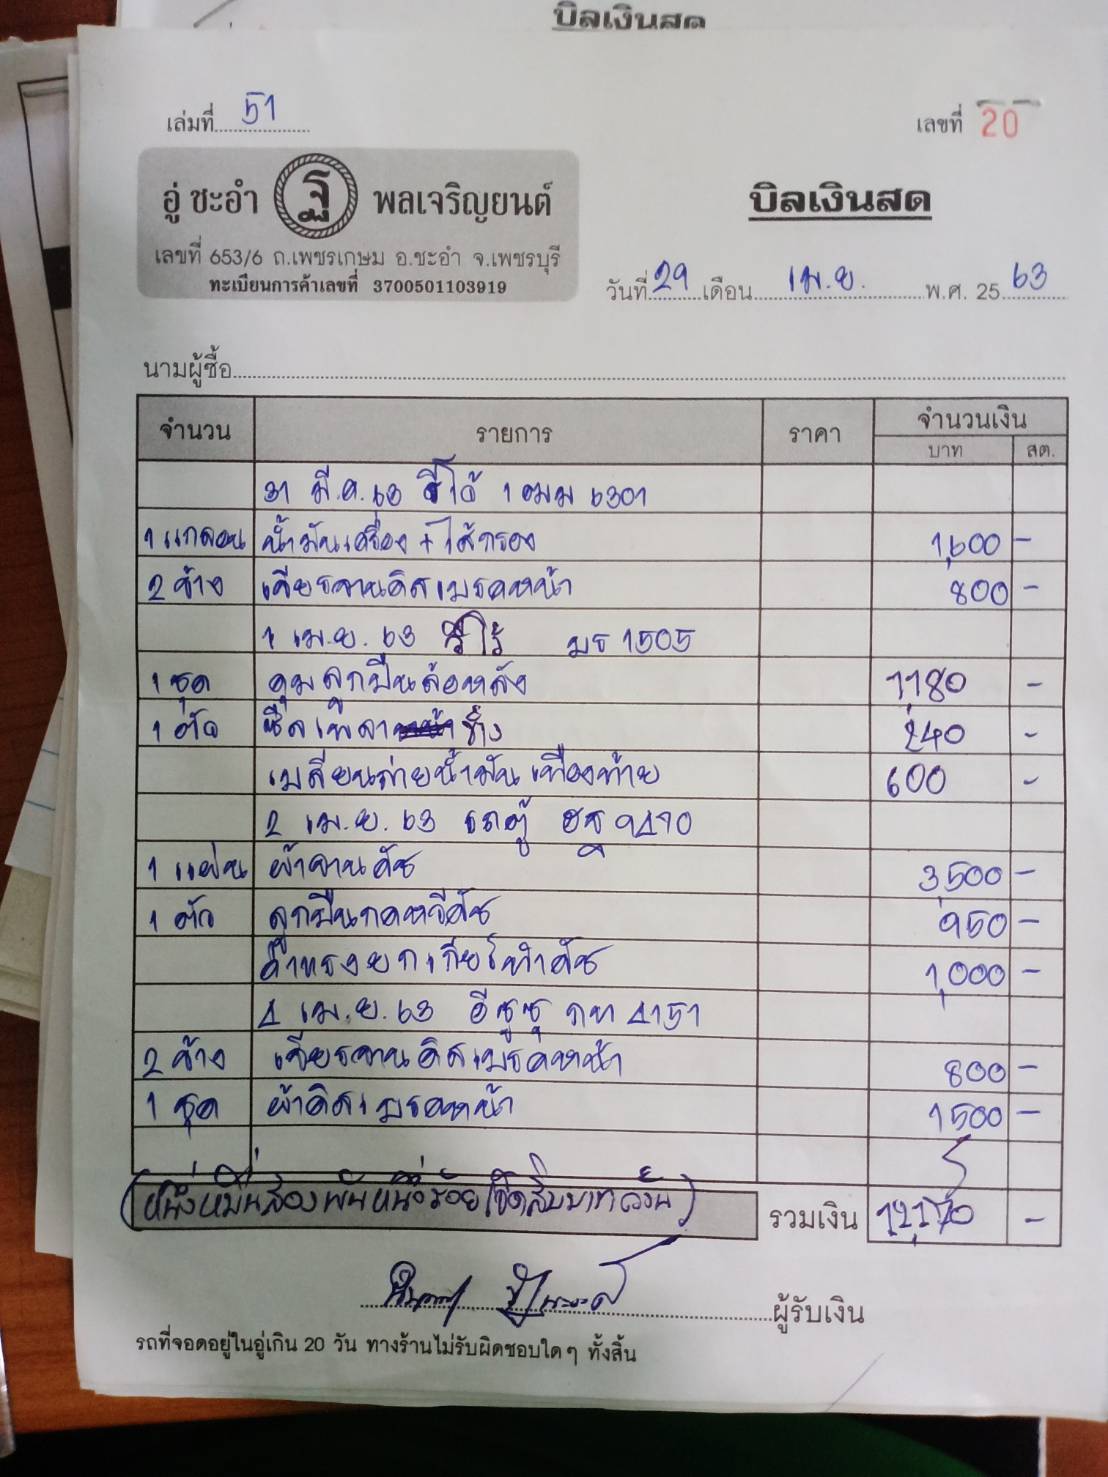 บิลเงินสด
เล่มที่ 51
เลขที่ 20
อู่ ชะอำ ฐ พลเจริญยนต์
เลขที่ 653/6 ถ.เพชรเกษม อ.ชะอำ จ.เพชรบุรี
ทะเบียนการค้าเลขที่ 3700501103919
บิลเงินสด
วันที่ 29 เดือน เม.ย. พ.ศ. 25 63
นามผู้ซื้อ
จำนวน รายการ ราคา จำนวนเงิน
บาท สต.
31 มี.ค. 63 วีโก้ 1 ฒฌ 6301
1 แกลอน น้ำมันเครื่อง + ไส้กรอง 1,600 -
2 ข้าง เจียรจานดิสเบรคหน้า 800 -
1 เม.ย. 63 วีโก้ บร 1505
1 ชุด ดุมลูกปืนล้อหลัง 1,180 -
1 ตัว ซีลเพลาข้าง 240 -
เปลี่ยนถ่ายน้ำมันเฟืองท้าย 600 -
2 เม.ย. 63 รถตู้ ฮฐ 9470
1 แผ่น ผ้าจานคลัช 3,500 -
1 ตัว ลูกปืนกดหวีคลัช 950 -
ค่าแรงยกเกียร์ทำคลัช 1,000 -
4 เม.ย. 63 อีซูซุ ภท 4151
2 ข้าง เจียรจานดิสเบรคหน้า 800 -
1 ชุด ผ้าดิสเบรคหน้า 1500 -
(หนึ่งหมื่นสองพันหนึ่งร้อยเจ็ดสิบบาทถ้วน) รวมเงิน 12,170 -
ผู้รับเงิน
รถที่จอดอยู่ในอู่เกิน 20 วัน ทางร้านไม่รับผิดชอบใดๆ ทั้งสิ้น